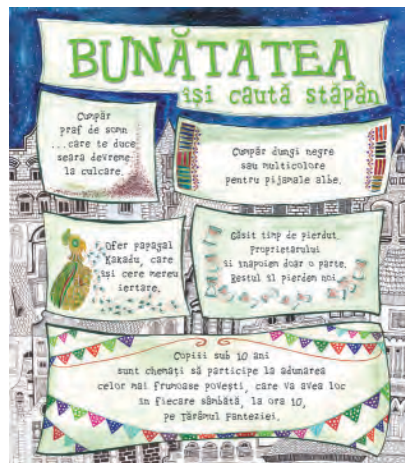 BUNĂTATEA
își caută stăpân
Cumpăr
praf de somn
...care te duce
seara devreme
la culcare.
Cumpăr dungi negre
sau multicolore
pentru pijamale albe.
Ofer papagal
Kakadu, care
își cere mereu
iertare.
Găsit timp de pierdut.
Proprietarului
îi înapoiem doar o parte.
Restul îl pierdem noi.
Copiii sub 10 ani
sunt chemați să participe la adunarea
celor mai frumoase povești, care va avea loc
în fiecare sâmbătă, la ora 10,
pe Tărâmul Fanteziei.